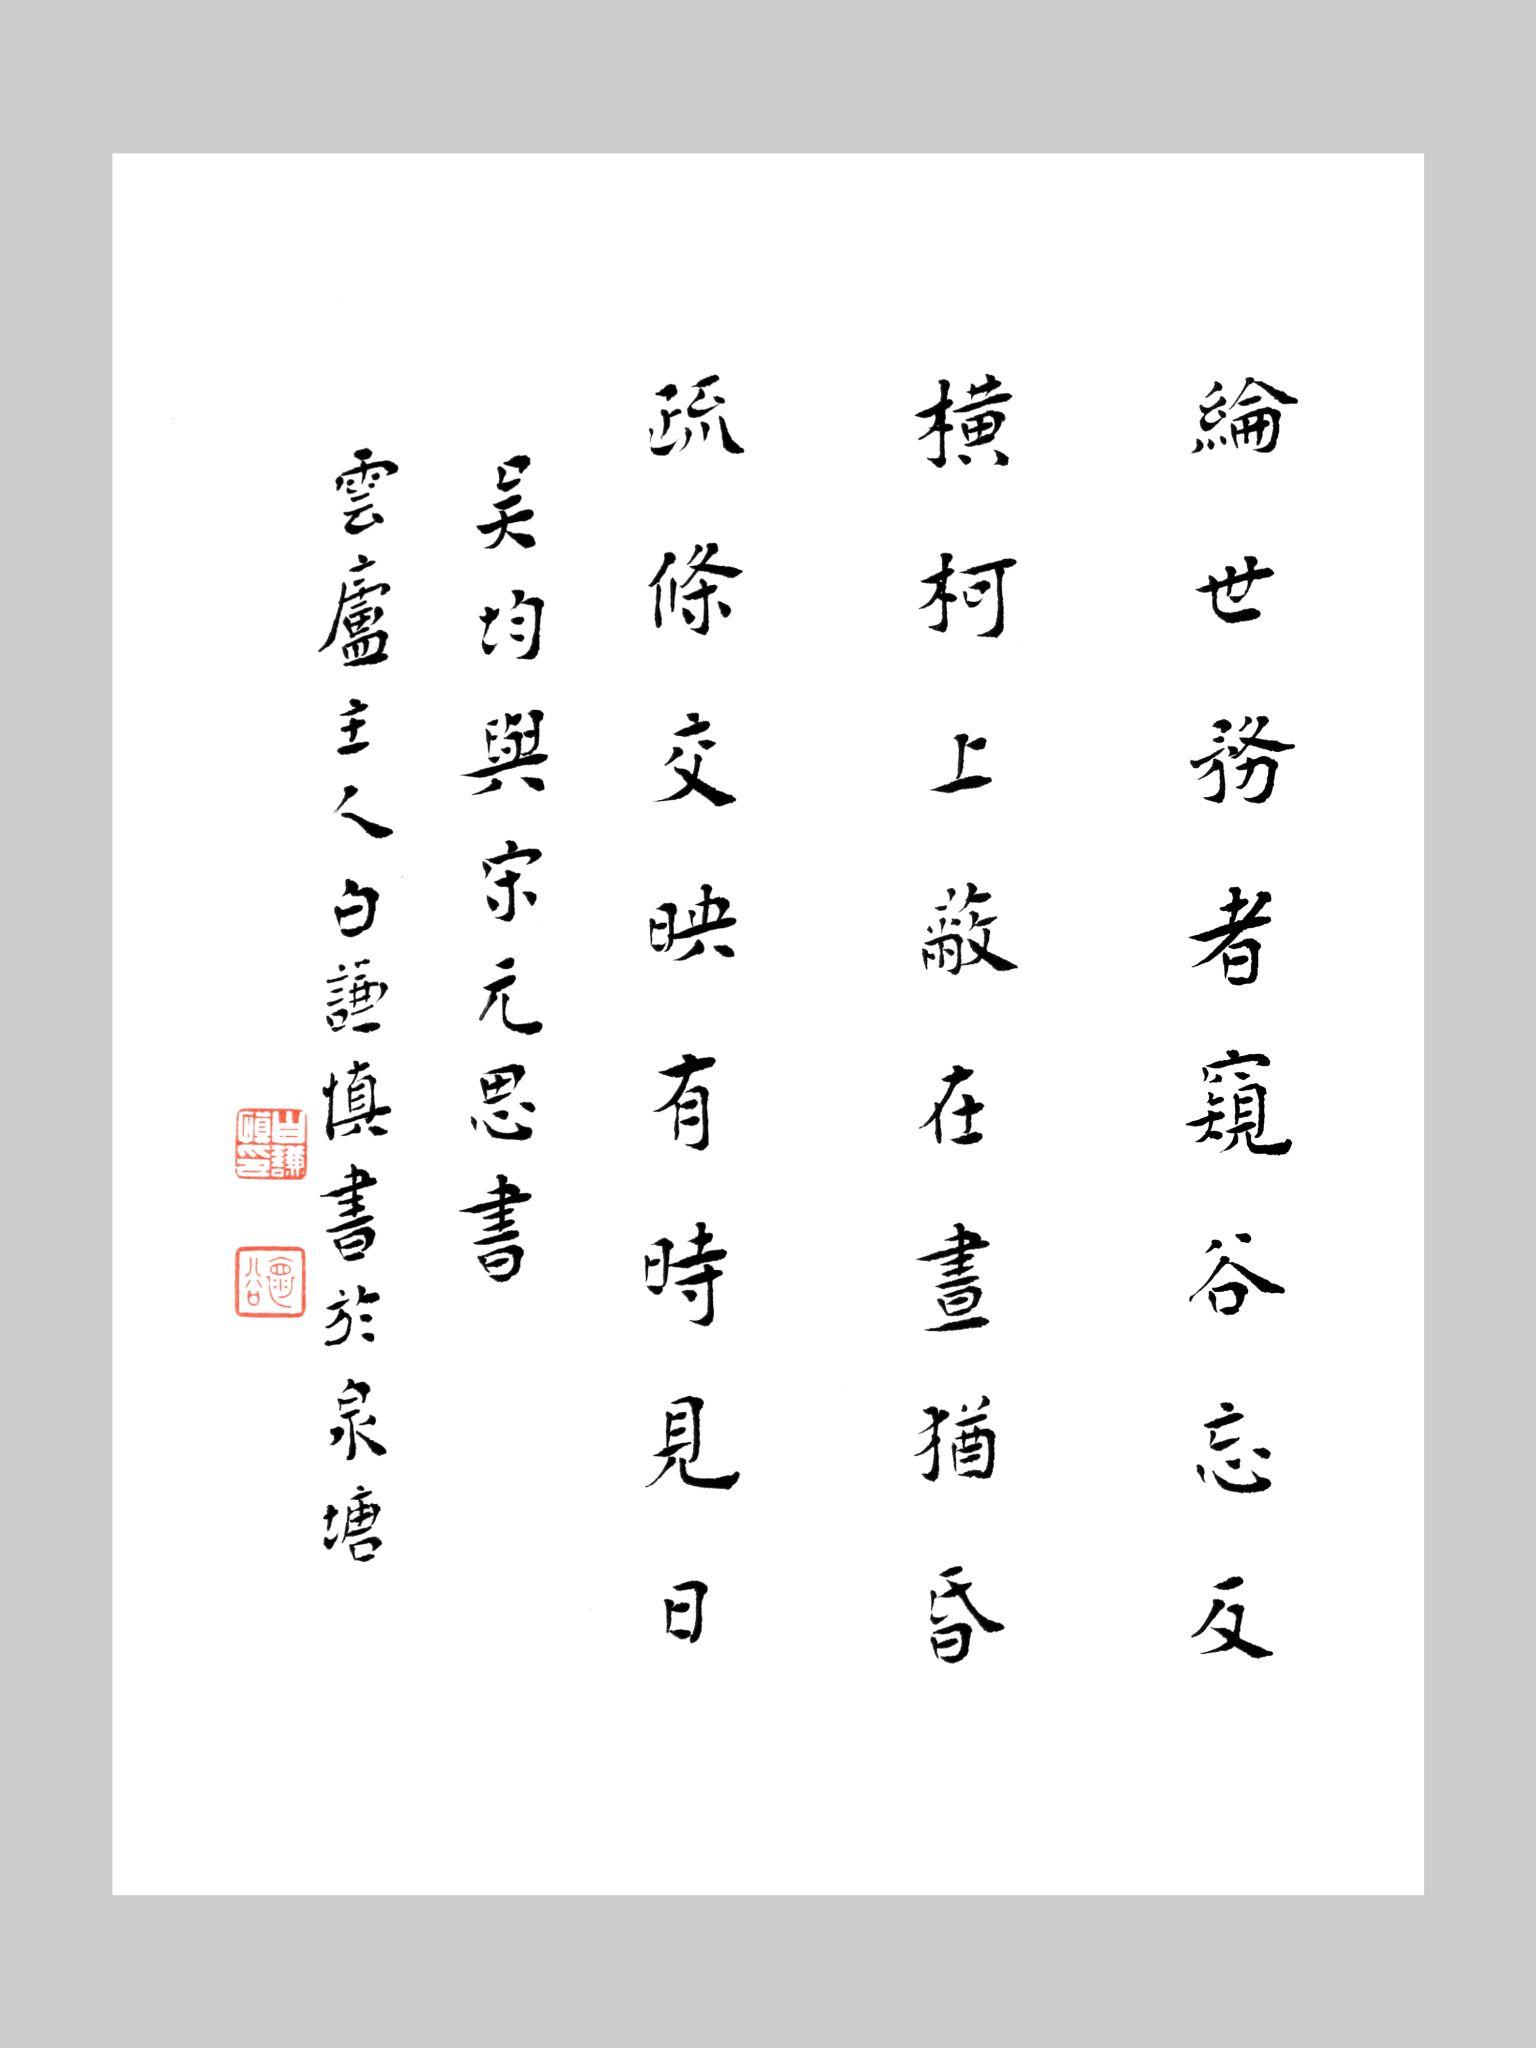 綸世務者窺谷忘反
橫柯上蔽在晝猶昏
疏條交映有時見日
吳均與宋元思書
雲廬主人白謙慎書於泉塘
白謙慎印